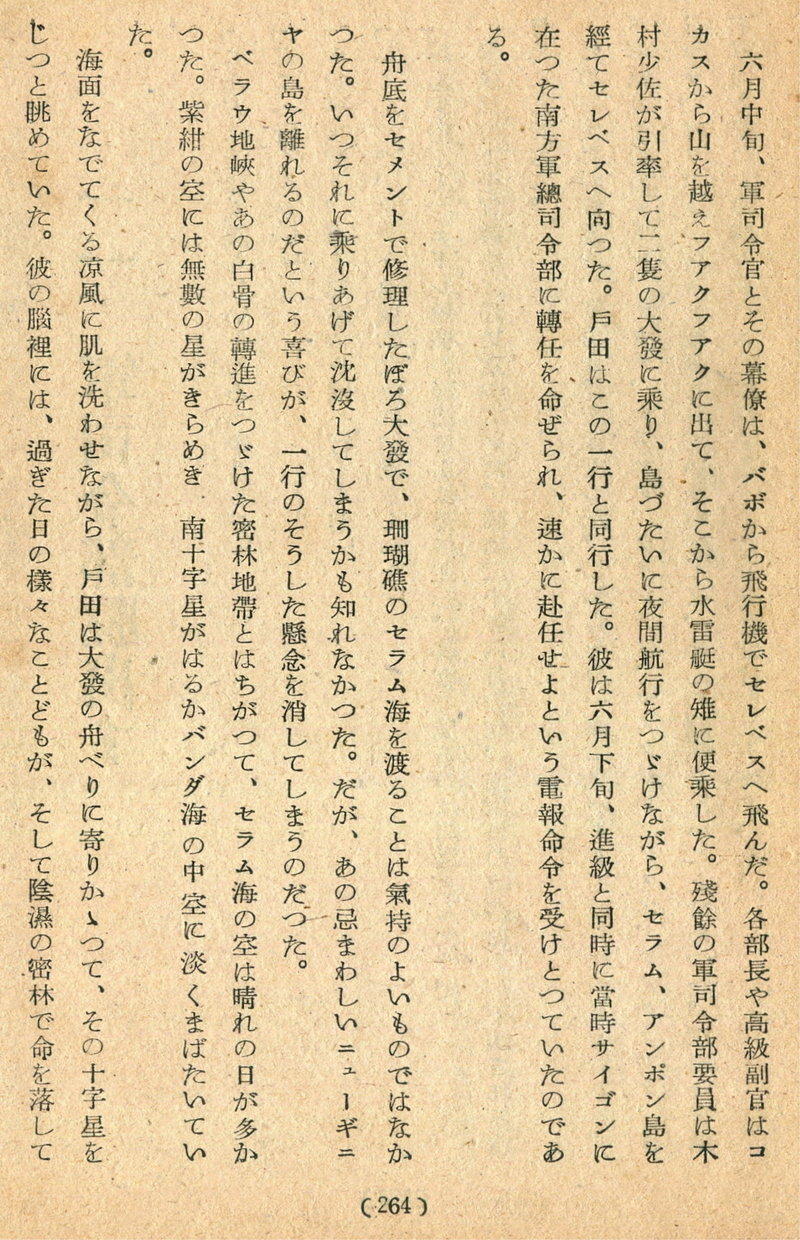 六月中旬、軍司令官とその幕僚は、バボから飛行機でセレベスへ飛んだ。各部長や高級副官はコ
カスから山を越えフアクフアクに出て、そこから水雷艇の雉に便乘した。殘餘の軍司令部要員は木
村少佐が引率して二隻の大發に乘り、島づたいに夜間航行をつゞけながら、セラム、アンボン島を
經てセレベスへ向つた。戸田はこの一行と同行した。彼は六月下旬、進級と同時に當時サイゴンに
在つた南方軍總司令部に轉任を命ぜられ、速かに赴任せよという電報命令を受けとつていたのであ
る。
舟底をセメントで修理したぼろ大發で、珊瑚礁のセラム海を渡ることは氣持のよいものではなか
つた。いつそれに乘りあげて沈沒してしまうかも知れなかつた。だが、あの忌まわしいニューギニ
ヤの島を離れるのだという喜びが、一行のそうした懸念を消してしまうのだつた。
ベラウ地峽やあの白骨の轉進をつゞけた密林地帶とはちがつて、セラム海の空は晴れの日が多か
つた。紫紺の空には無數の星がきらめき 南十字星がはるかバンダ海の中空に淡くまばたいてい
た。
海面をなでてくる凉風に肌を洗わせながら、戸田は大發の舟べりに寄りかゝつて、その十字星を
じつと眺めていた。彼の腦裡には、過ぎた日の樣々なことどもが、そして陰濕の密林で命を落して
(264)